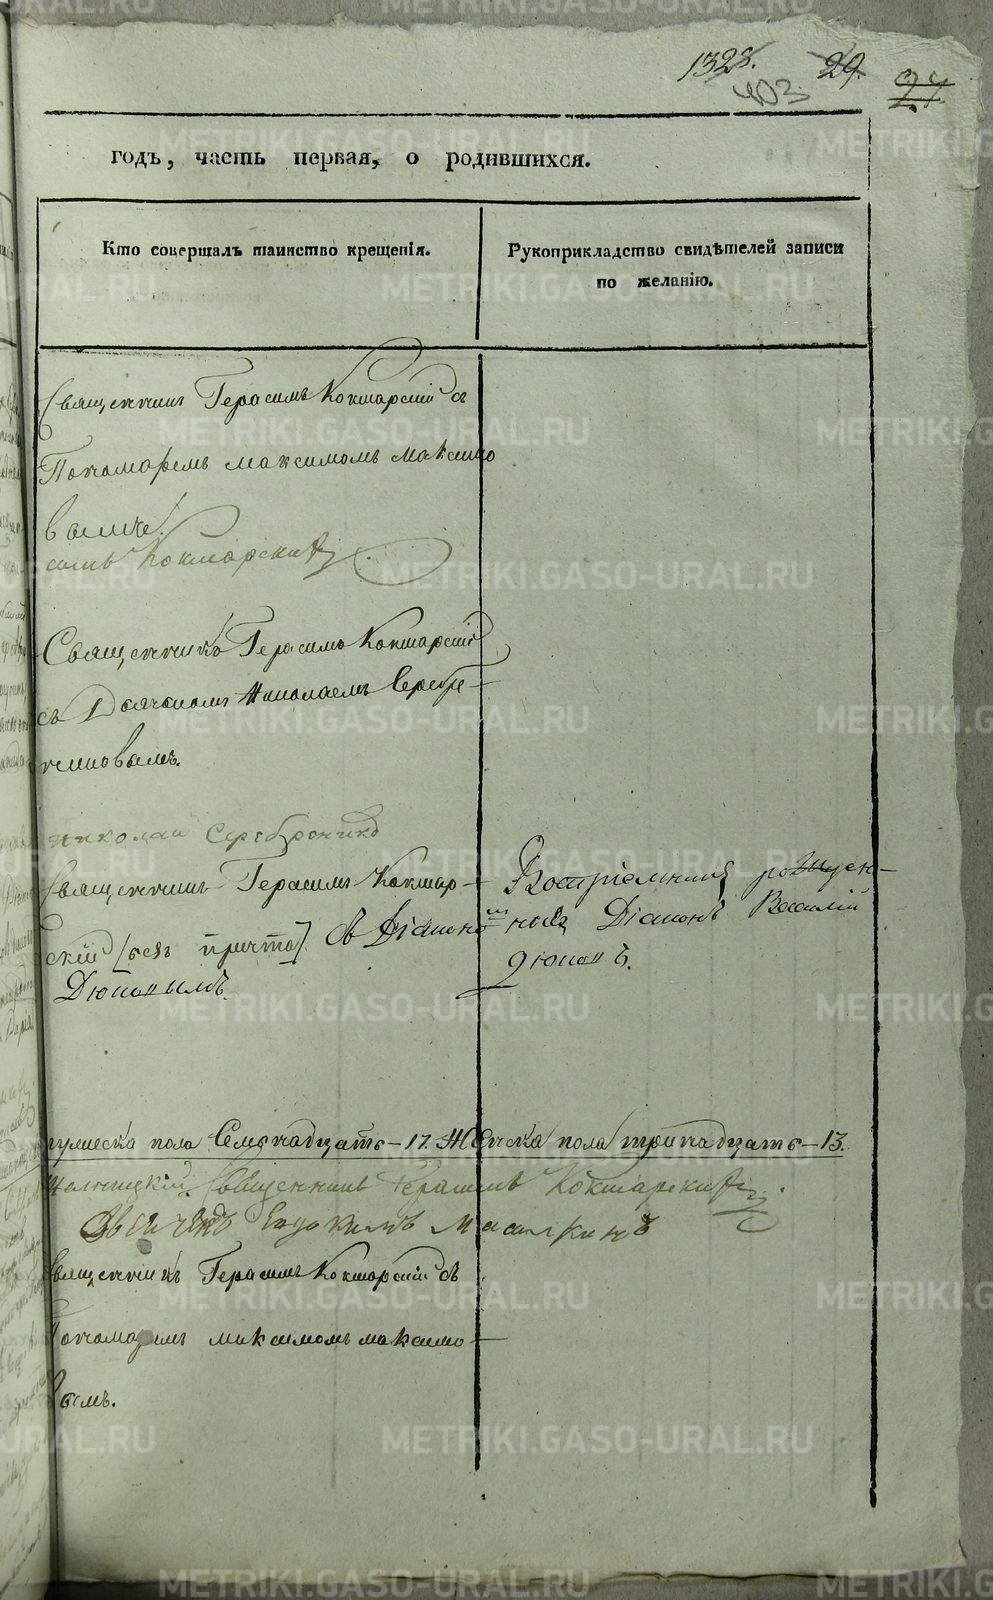 1328. 29. 27
403
годъ, часть первая, о родившихся.
Кто совершалъ таинство крещенія.
Рукоприкладство свидѣтелей записи
по желанію.
Священникъ Герасимъ Кокшарскій съ
Пономаремъ максимомъ максимо
вымъ.
Кокшарскій
Священникъ Герасимъ Кокшарскій
съ Дьячкомъ Николаемъ Серебре-
никовымъ.
николаи Серебренико
Священникъ Герасимъ Кокшар-
скій [безъ причта] съ Діакономъ
Дюковымъ.
Воспріемникъ
Діаконъ Василій
Дюковъ.
мужеска пола Семьнадцать - 17. Женска пола тринадцать - 13.
Священникъ Герасимъ Кокшарскій
Евдокимъ
Священникъ Герасимъ Кокшарскій съ
Пономаремъ максимомъ максимо-
вымъ.
METRIKI.GASO-URAL.RU